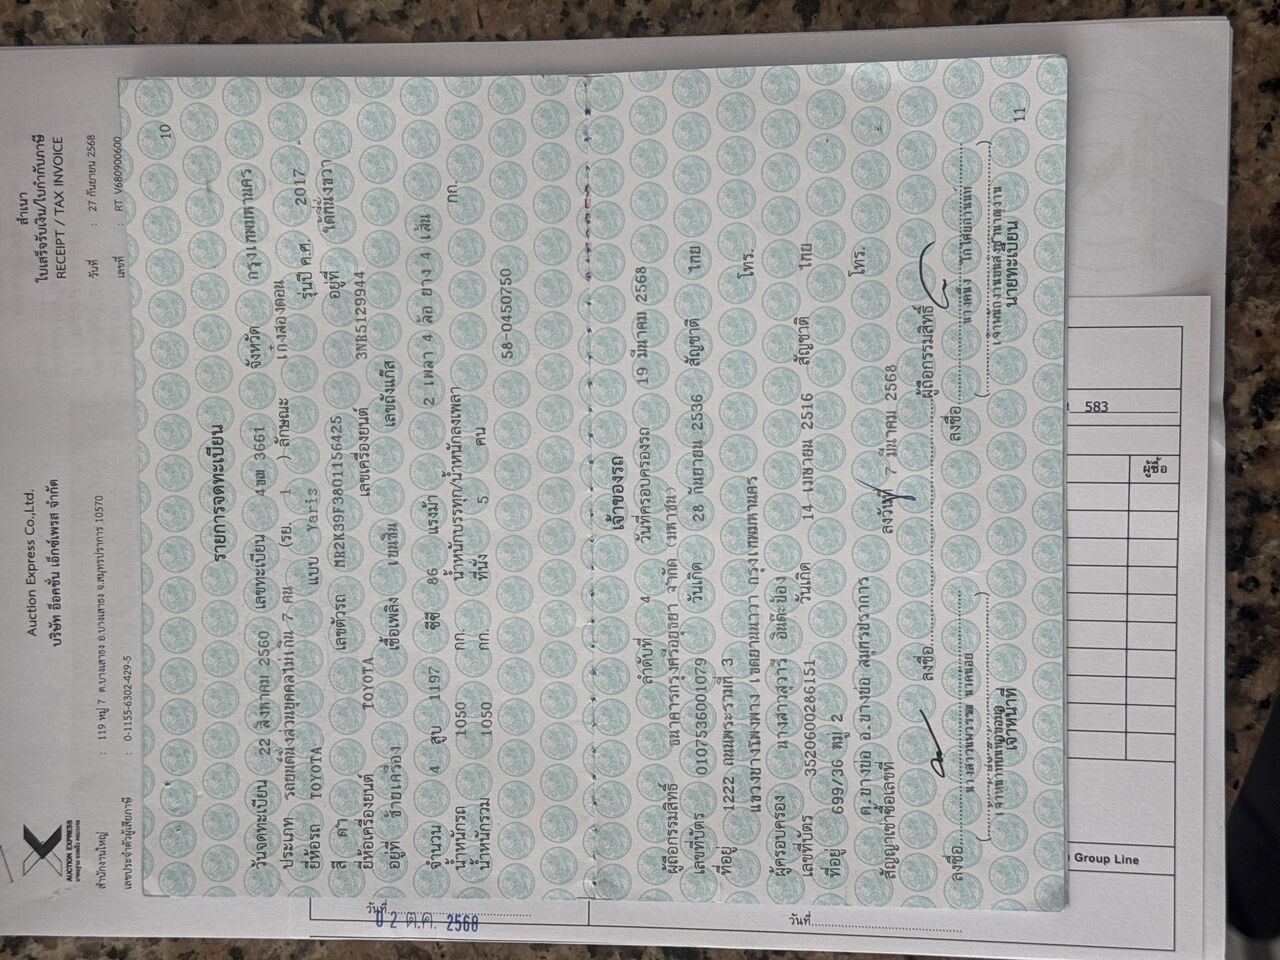 AUCTION EXPRESS
Auction Express Co.,Ltd.
บริษัท อ๊อคชั่น เอ็กซ์เพรส จำกัด
สำเนา
ใบเสร็จรับเงิน/ใบกำกับภาษี
RECEIPT / TAX INVOICE
สำนักงานใหญ่ : 119 หมู่ 7 ต.บางเสาธง อ.บางเสาธง จ.สมุทรปราการ 10570
วันที่ : 27 กันยายน 2568
เลขประจำตัวผู้เสียภาษี : 0-1155-6302-429-5
เลขที่ : RT V680900600
10
รายการจดทะเบียน
วันจดทะเบียน 22 สิงหาคม 2560 เลขทะเบียน 4ขฒ 3661 จังหวัด กรุงเทพมหานคร
ประเภท รถยนต์นั่งส่วนบุคคลไม่เกิน 7 คน (รย. 1 ) ลักษณะ เก๋งสองตอน
ยี่ห้อรถ TOYOTA แบบ Yaris รุ่นปี ค.ศ. 2017
สี ดำ เลขตัวรถ MR2K39F3801156425 อยู่ที่ ใต้ที่นั่งขวา
ยี่ห้อเครื่องยนต์ TOYOTA เลขเครื่องยนต์ 3NR5129944
อยู่ที่ ซ้ายเครื่อง เชื้อเพลิง เบนซิน เลขถังแก๊ส
จำนวน 4 สูบ 1197 ซีซี 86 แรงม้า 2 เพลา 4 ล้อ ยาง 4 เส้น
น้ำหนักรถ 1050 กก. น้ำหนักบรรทุก/น้ำหนักลงเพลา กก.
น้ำหนักรวม 1050 กก. ที่นั่ง 5 คน
58-0450750
เจ้าของรถ
ลำดับที่ 4 วันที่ครอบครองรถ 19 มีนาคม 2568
ผู้ถือกรรมสิทธิ์ ธนาคารกรุงศรีอยุธยา จำกัด (มหาชน)
เลขที่บัตร 0107536001079 วันเกิด 28 กันยายน 2536 สัญชาติ ไทย
ที่อยู่ 1222 ถนนพระรามที่ 3
แขวงบางโพงพาง เขตยานนาวา กรุงเทพมหานคร โทร.
ผู้ครอบครอง นางสาวสุวารี อินต๊ะป้อง
เลขที่บัตร 3520600286151 วันเกิด 14 เมษายน 2516 สัญชาติ ไทย
ที่อยู่ 699/36 หมู่ 2
ต.บางบ่อ อ.บางบ่อ สมุทรปราการ โทร.
สัญญาเช่าซื้อเลขที่ ลงวันที่ 7 มีนาคม 2568
ลงชื่อ ผู้ถือกรรมสิทธิ์
ลงชื่อ ลงชื่อ
เจ้าหน้าที่ นายทะเบียน
11
583
ผู้ซื้อ
Group Line
วันที่
0 2 ต.ค. 2568
วันที่